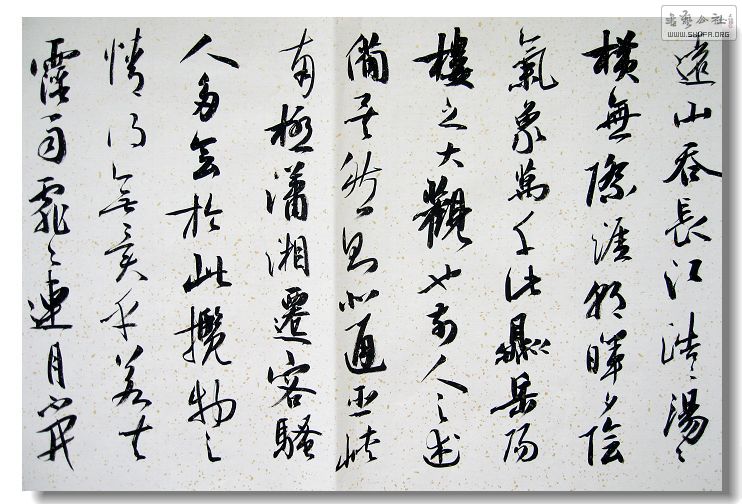 遠山吞長江浩〻湯〻
橫無際涯朝暉夕陰
氣象萬千此岳陽
樓之大觀也前人之述
備矣然則北通巫峽
南極瀟湘遷客騷
人多會於此攬物之
情得無異乎若夫
霪雨霏〻連月不開
书艺公社
WWW.SHUFA.ORG